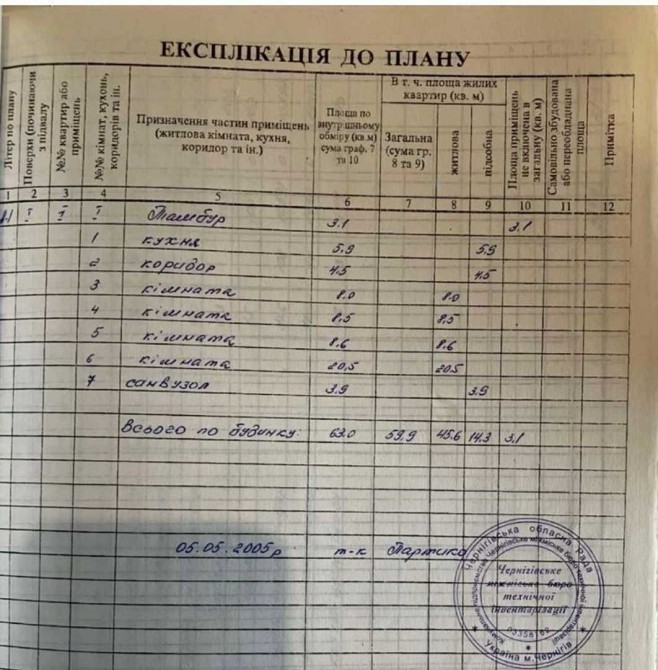 ЕКСПЛІКАЦІЯ ДО ПЛАНУ
Літер по плану
Поверхи (починаючи з підвалу
№№ квартир або приміщень
№№ кімнат, кухонь, коридорів та ін.
Призначення частин приміщень (житлова кімната, кухня, коридор та ін.)
Площа по внутрішньому обміру (кв.м) сума граф. 7 та 10
В т. ч. площа жилих квартир (кв. м)
Загальна (сума гр. 8 та 9)
житлова
підсобна
Площа приміщень не включена в загальну (кв. м)
Самовільно збудована або переобладнана площа
Примітка
1 2 3 4 5 6 7 8 9 10 11 12
I 1 I Тамбур 3.1 3.1
1 кухня 5.9 5.9
2 коридор 4.5 4.5
3 кімната 8.0 8.0
4 кімната 8.5 8.5
5 кімната 8.6 8.6
6 кімната 20.5 20.5
7 санвузол 3.9 3.9
Всього по будинку: 63.0 59.9 45.6 14.3 3.1
05.05.2005р т-к
Чернігівська обласна Рада
Чернігівське
міжміське бюро
технічної
інвентаризації
Україна м.Чернігів